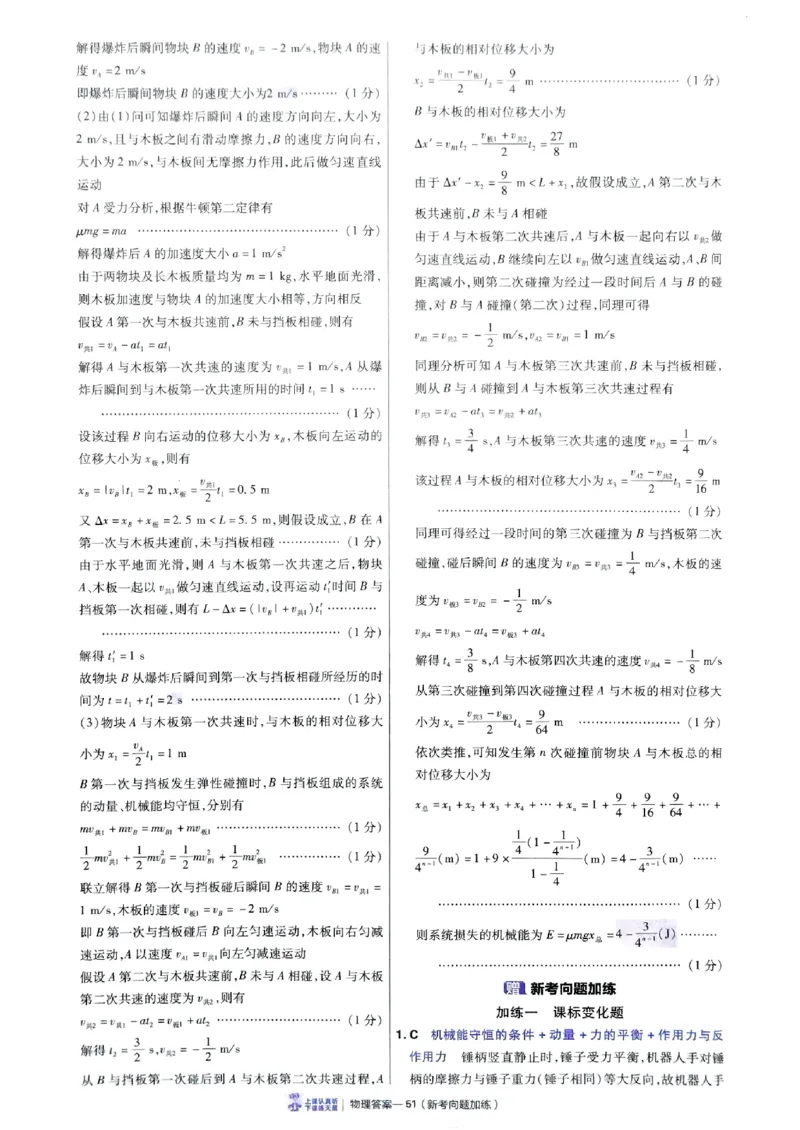 解得爆炸后瞬间物块 B 的速度 v_B = -2 m/s,物块 A 的速
度 v_A = 2 m/s
即爆炸后瞬间物块 B 的速度大小为2 m/s ……… (1分)
(2)由(1)问可知爆炸后瞬间 A 的速度方向向左,大小为
2 m/s,且与木板之间有滑动摩擦力,B 的速度方向向右,
大小为 2 m/s,与木板间无摩擦力作用,此后做匀速直线
运动
对 A 受力分析,根据牛顿第二定律有
μmg = ma ……………………………………… (1分)
解得爆炸后 A 的加速度大小 a = 1 m/s²
由于两物块及长木板质量均为 m = 1 kg,水平地面光滑,
则木板加速度与物块 A 的加速度大小相等,方向相反
假设 A 第一次与木板共速前,B 未与挡板相碰,则有
v_共1 = v_A - at₁ = at₁
解得 A 与木板第一次共速的速度为 v_共1 = 1 m/s,A 从爆
炸后瞬间到与木板第一次共速所用的时间 t₁ = 1 s ……
……………………………………………… (1分)
设该过程 B 向右运动的位移大小为 x_B,木板向左运动的
位移大小为 x_板,则有
x_B = |v_B|t₁ = 2 m, x_板 = v_共1/2 t₁ = 0.5 m
又 Δx = x_B + x_板 = 2.5 m < L = 5.5 m,则假设成立,B 在 A
第一次与木板共速前,未与挡板相碰 …………… (1分)
由于水平地面光滑,则 A 与木板第一次共速之后,物块
A、木板一起以 v_共1 做匀速直线运动,设再运动 t₁′时间 B 与
挡板第一次相碰,则有 L - Δx = (|v_B| + v_共1)t₁′ …………
……………………………………………… (1分)
解得 t₁′ = 1 s
故物块 B 从爆炸后瞬间到第一次与挡板相碰所经历的时
间为 t = t₁ + t₁′ = 2 s …………………………… (1分)
(3)物块 A 与木板第一次共速时,与木板的相对位移大
小为 x₁ = v_A/2 t₁ = 1 m
B 第一次与挡板发生弹性碰撞时,B 与挡板组成的系统
的动量、机械能均守恒,分别有
mv_共1 + mv_B = mv_B1 + mv_板1 ……………………… (1分)
1/2 mv²_共1 + 1/2 mv²_B = 1/2 mv²_B1 + 1/2 mv²_板1 …………… (1分)
联立解得 B 第一次与挡板碰后瞬间 B 的速度 v_B1 = v_共1 =
1 m/s,木板的速度 v_板1 = v_B = -2 m/s
即 B 第一次与挡板碰后 B 向左匀速运动,木板向右匀减
速运动,A 以速度 v_A1 = v_共1 向左匀减速运动
假设 A 第二次与木板共速前,B 未与 A 相碰,设 A 与木板
第二次共速的速度为 v_共2,则有
v_共2 = v_共1 - at₂ = v_板1 + at₂ ……………………… (1分)
解得 t₂ = 3/2 s, v_共2 = -1/2 m/s
从 B 与挡板第一次碰后到 A 与木板第二次共速过程,A
与木板的相对位移大小为
x₂ = (v_共1 - v_板1)/2 t₂ = 9/4 m ………………………… (1分)
B 与木板的相对位移大小为
Δx′ = v_B1t₂ - (v_板1 + v_共2)/2 t₂ = 27/8 m
由于 Δx′ - x₂ = 9/8 m < L + x₁,故假设成立,A 第二次与木
板共速前,B 未与 A 相碰
由于 A 与木板第二次共速后,A 与木板一起向右以 v_共2 做
匀速直线运动,B 继续向左以 v_B1 做匀速直线运动,A、B 间
距离减小,则第二次碰撞为经过一段时间后 A 与 B 的碰
撞,对 B 与 A 碰撞(第二次)过程,同理可得
v_B2 = v_共2 = -1/2 m/s, v_A2 = v_B1 = 1 m/s
同理分析可知 A 与木板第三次共速前,B 未与挡板相碰,
则从 B 与 A 碰撞到 A 与木板第三次共速过程有
v_共3 = v_A2 - at₃ = v_共2 + at₃
解得 t₃ = 3/4 s,A 与木板第三次共速的速度 v_共3 = 1/4 m/s
该过程 A 与木板的相对位移大小为 x₃ = (v_A2 - v_共2)/2 t₃ = 9/16 m
……………………………………………… (1分)
同理可得经过一段时间的第三次碰撞为 B 与挡板第二次
碰撞,碰后瞬间 B 的速度为 v_B3 = v_共3 = 1/4 m/s,木板的速
度为 v_板3 = v_B2 = -1/2 m/s
v_共4 = v_共3 - at₄ = v_板3 + at₄
解得 t₄ = 3/8 s,A 与木板第四次共速的速度 v_共4 = -1/8 m/s
从第三次碰撞到第四次碰撞过程 A 与木板的相对位移大
小为 x₄ = (v_共3 - v_板3)/2 t₄ = 9/64 m …………………… (1分)
依次类推,可知发生第 n 次碰撞前物块 A 与木板总的相
对位移大小为
x_总 = x₁ + x₂ + x₃ + x₄ + … + x_n = 1 + 9/4 + 9/16 + 9/64 + … +
9/4ⁿ⁻¹ (m) = 1 + 9 × [1/4(1 - 1/4ⁿ⁻¹)]/(1 - 1/4) (m) = 4 - 3/4ⁿ⁻¹ (m) ……
……………………………………………… (1分)
则系统损失的机械能为 E = μmgx_总 = 4 - 3/4ⁿ⁻¹ (J) ………
……………………………………………… (1分)
赠 新考向题加练
加练一 课标变化题
1. C 机械能守恒的条件+动量+力的平衡+作用力与反
作用力 锤柄竖直静止时,锤子受力平衡,机器人手对锤
柄的摩擦力与锤子重力(锤子相同)等大反向,故机器人手
上课认真听
下课练天星
物理答案—51(新考向题加练)